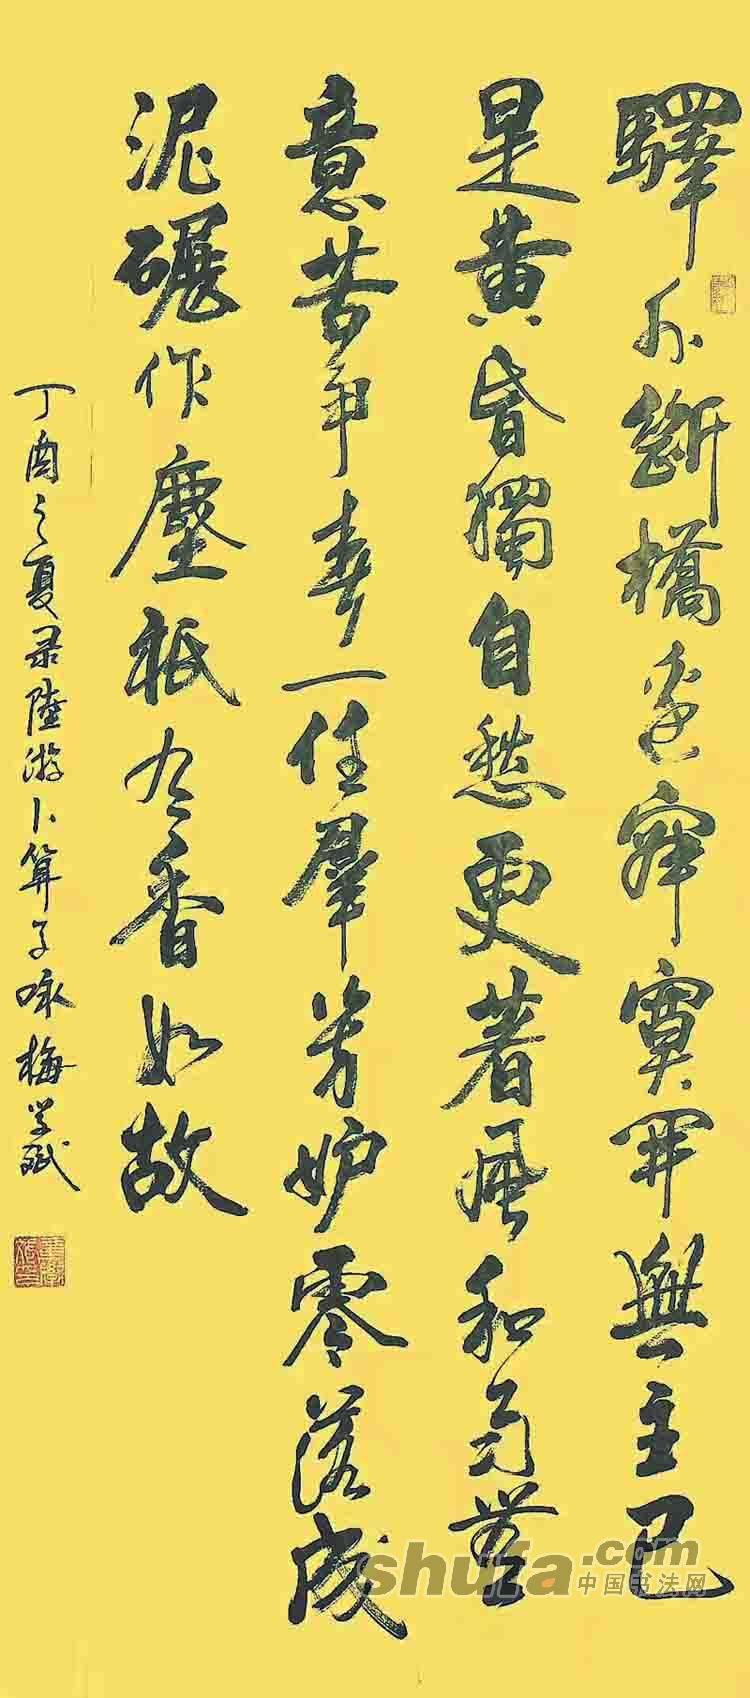 驛外斷橋邊寂寞開無主已
是黄昏獨自愁更著風和雨無
意苦爭春一任羣芳妒零落成
泥碾作塵祇有香如故
丁酉之夏录陸游卜算子咏梅学
shufa.com
中国书法网